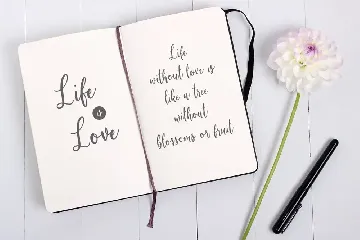 Life
is
Love
Life
without love is
like a tree
without
blossoms or fruit